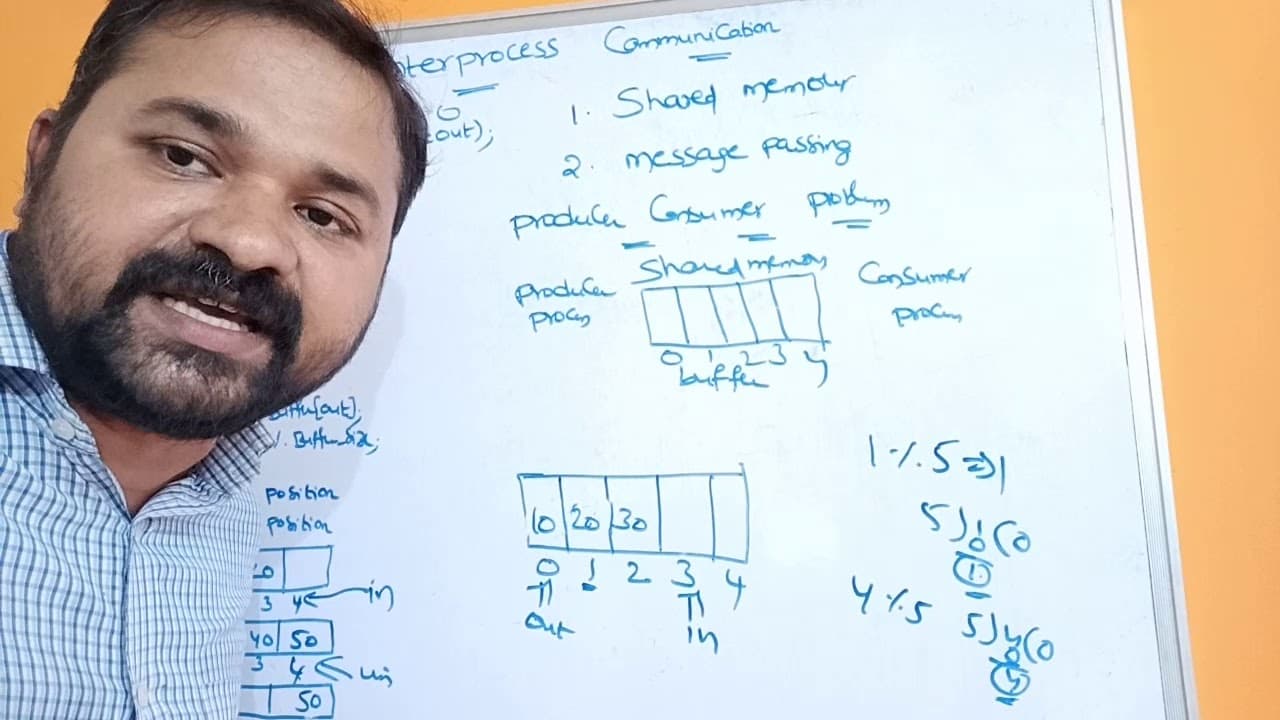 nterprocess Communication
out);
1. Shared memory
2. message passing
producer Consumer problem
Shared memory
producer
process
Consumer
process
0 1 2 3 4
buffer
Buffer[out];
%. Buffer_size;
position
position
3 4 in
40 50
3 4
50
10 20 30
0 1 2 3 4
out in
1 % 5 => 1
5) 1 (0
0
1
4 % 5
5) 4 (0
0
4